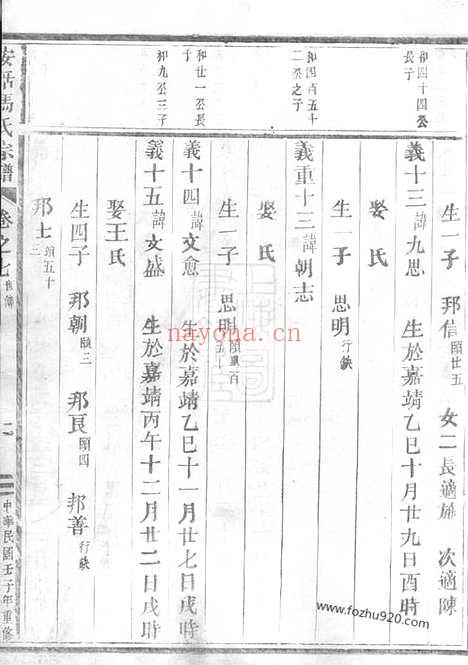 和四十四公
長子
生一子 邦信頤廿五 女二長適施 次適陳
義十三諱九思 生於嘉靖乙巳十月廿九日酉時
娶 氏
生一子 思明行缺
和四百五十
二公之子
義重十三諱朝志
娶 氏
生一子 思明頤單百
五一
和廿一公長
子
義十四諱文愈 生於嘉靖乙巳十一月廿七日戌時
和九公三子
義十五諱文盛 生於嘉靖丙午十二月廿二日戌時
娶王氏
生四子 邦朝頤三 邦良頤四 邦善行缺
邦士頤五十
三
馮氏宗譜
卷之七
二
中華民國壬子年重修
nayona.cn
www.fozhu920.com